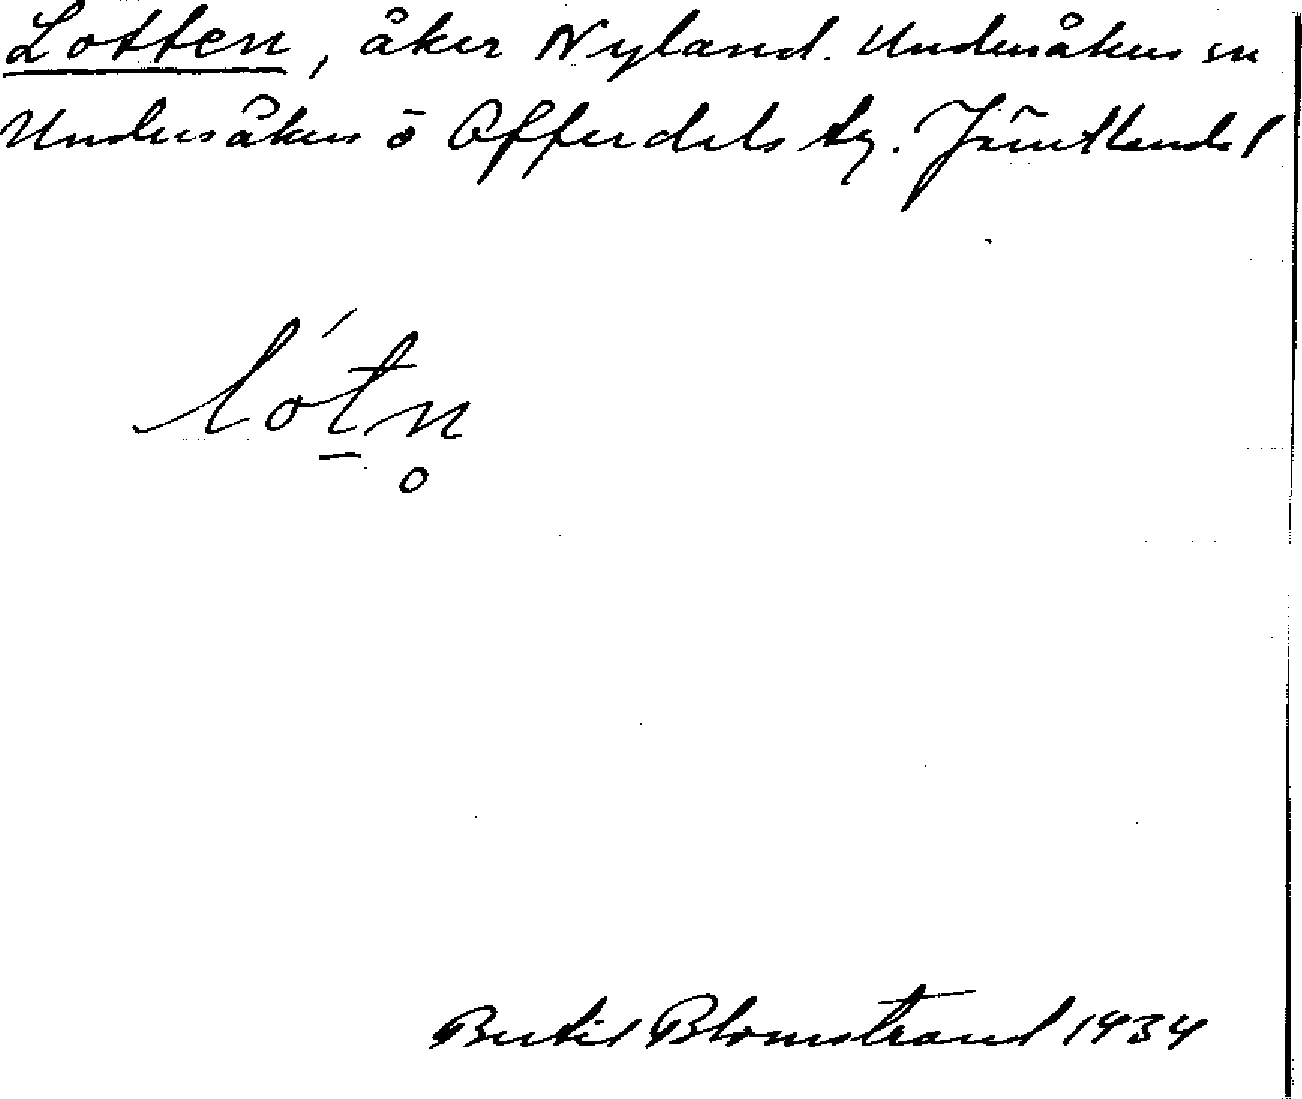 Lotten, åker Nyland. Undersåkers sn
Undersåkers o Offerdals tg. Jämtlands l
lót̲n̥
Bertil Blomstrand 1934